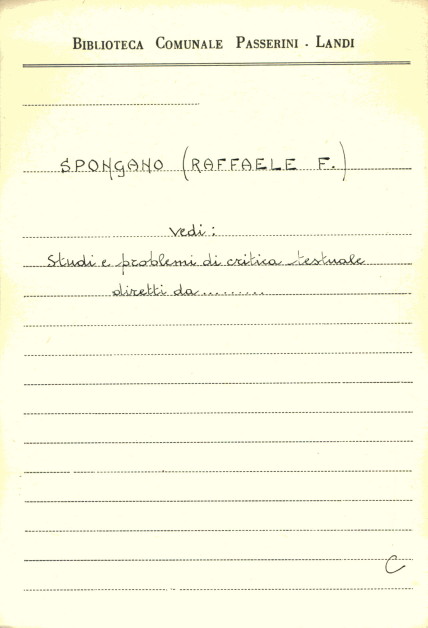 BIBLIOTECA COMUNALE PASSERINI - LANDI
SPONGANO (RAFFAELE F.)
Vedi:
Studi e problemi di critica testuale
diretti da.........
C